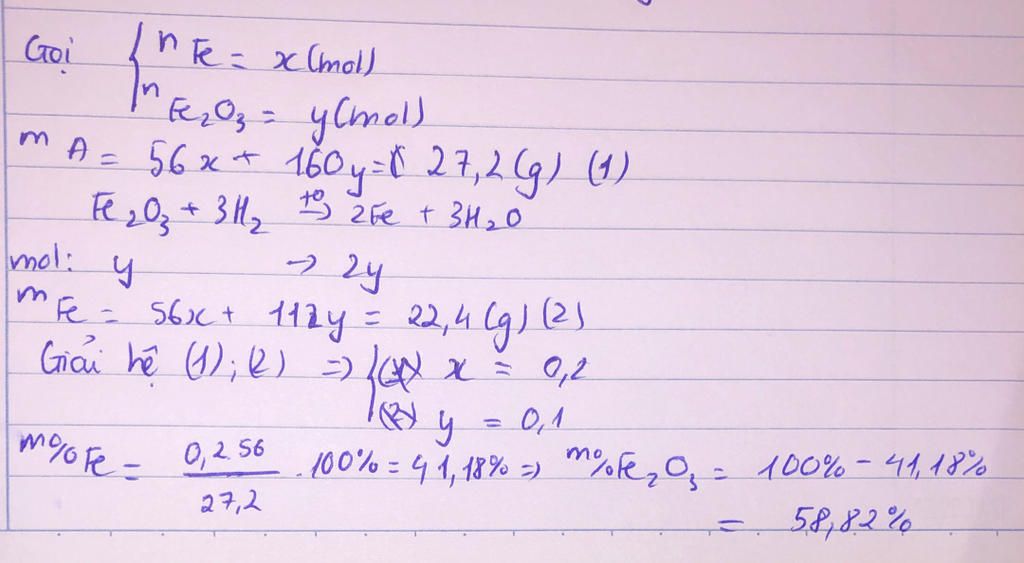 Gọi { n Fe = x (mol)
n Fe2O3 = y (mol)
m A = 56x + 160y = 27,2 (g) (1)
Fe2O3 + 3H2 →(t°) 2Fe + 3H2O
mol: y → 2y
m Fe = 56x + 112y = 22,4 (g) (2)
Giải hệ (1); (2) => { x = 0,2
y = 0,1
m% Fe = 0,2.56 / 27,2 . 100% = 41,18% => m% Fe2O3 = 100% - 41,18%
= 58,82%